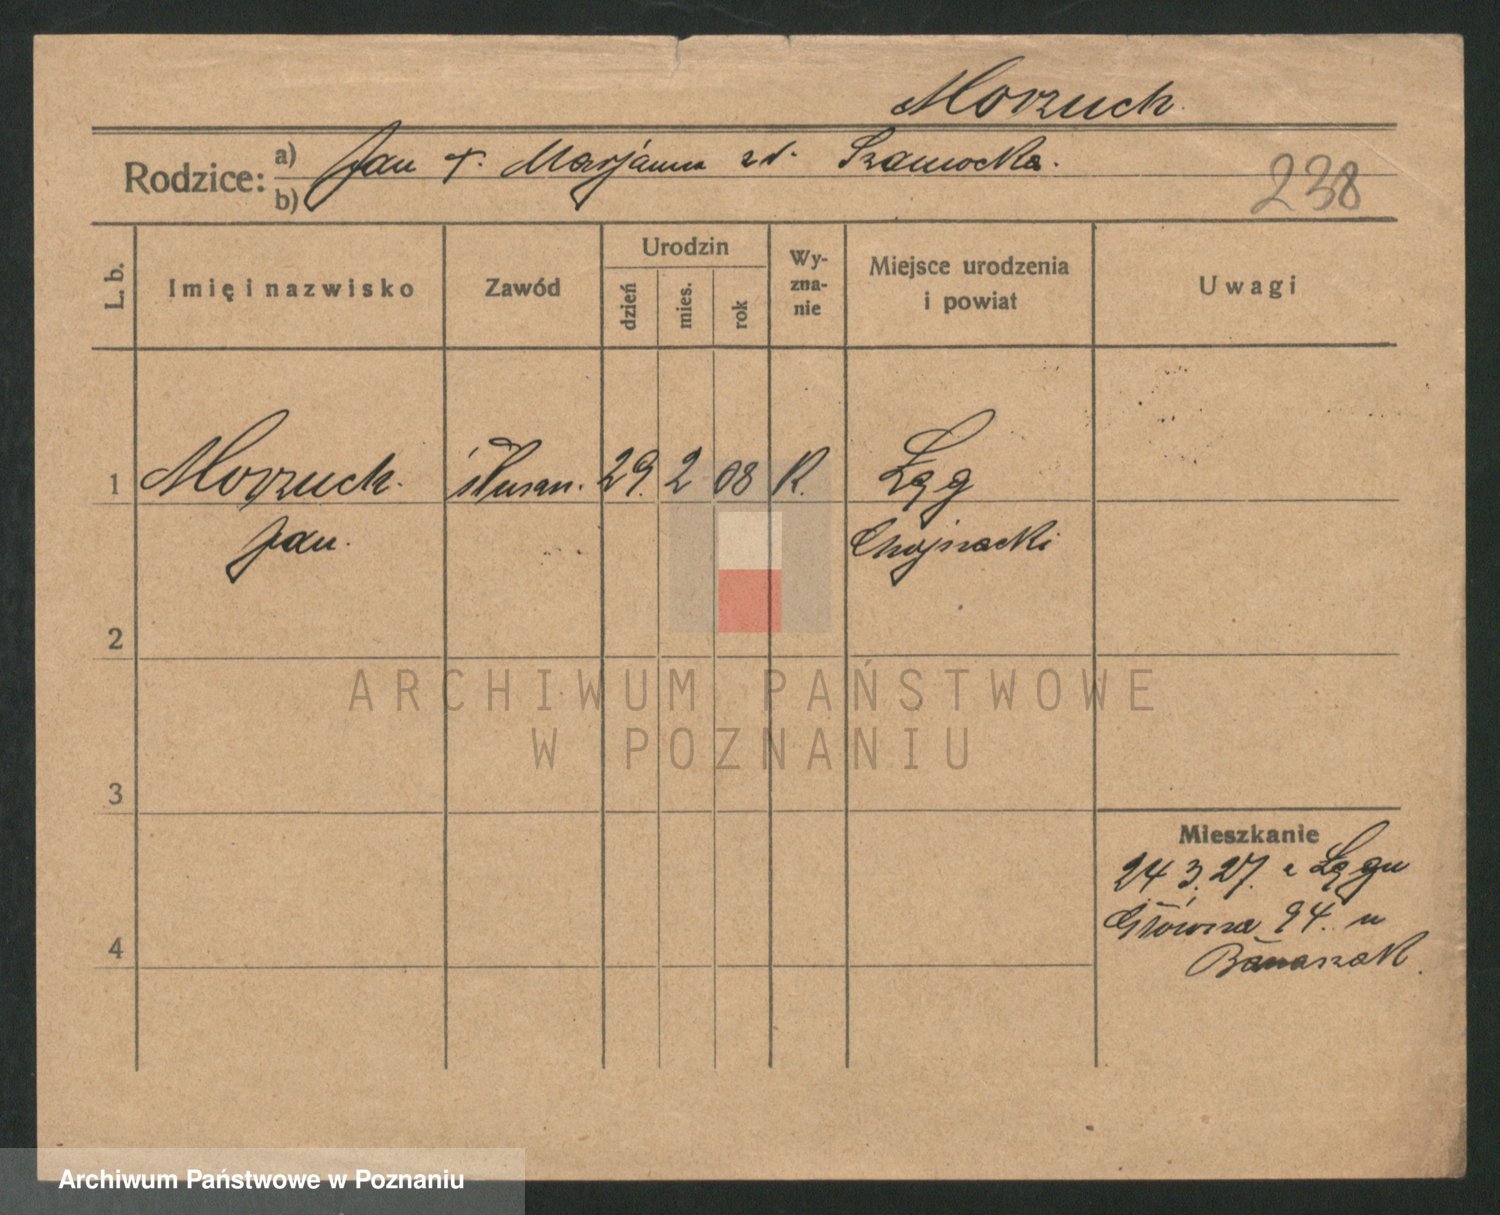 Morzuch
Rodzice: a) Jan + Marjanna zd. Szamocka.
b)
238
L. b. Imię i nazwisko Zawód Urodzin dzień mies. rok Wy-zna-nie Miejsce urodzenia i powiat Uwagi
1 Morzuch Jan. ślusarz. 29. 2 08 R. Łęg
Chojnacki
2
3
4
Mieszkanie
24 3. 27. z Łęgu
Główna 94. u
Banaszak
ARCHIWUM PAŃSTWOWE
W POZNANIU
Archiwum Państwowe w Poznaniu